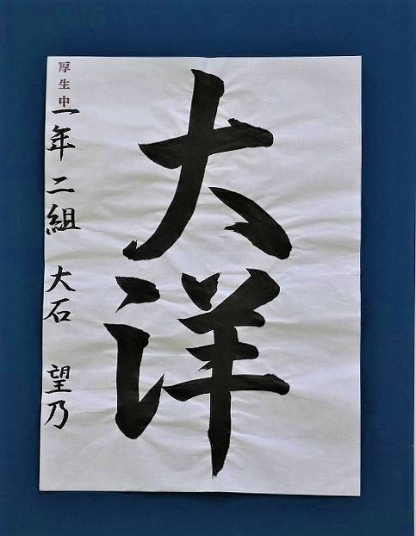 大洋
厚生中一年二組 大石 望乃